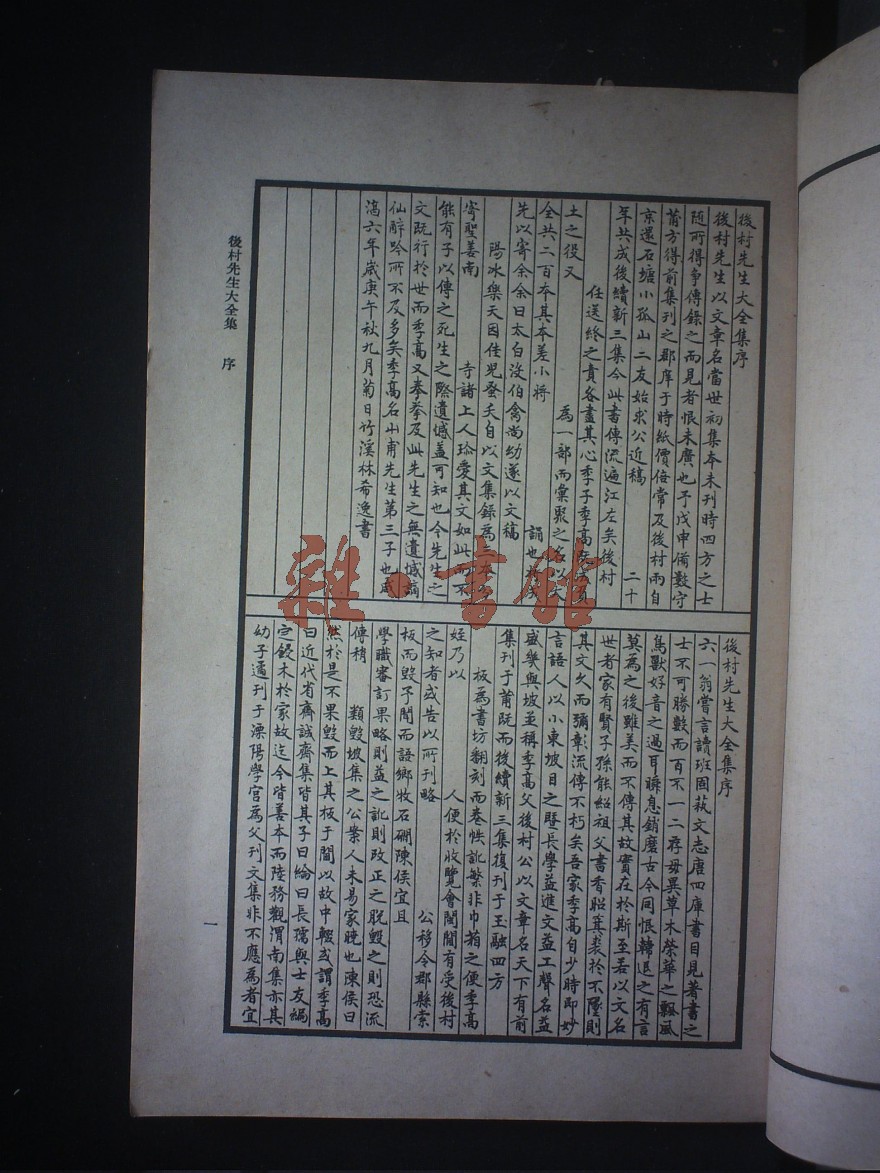 後村先生大全集序
後村先生以文章名當世初集本未刊時四方之士
隨所得爭傳錄之而見者恨未廣也予戊申備數守
莆方得前集刊之郡庠于時紙價倍常及後村兩自
京還石塘小孤山二友始求公近稿 二十
年共成後續新三集今此書傳流遍江左矣後村
任送終之責各盡其心季子季高
土之役又 為一部而彙聚之名以大
全共二百本其本差小將 誦也
先以寄余余曰太白沒伯禽尚幼遂以文稿
陽冰樂天因侄兒蚤夭自以文集錄為三本
寄聖善南 寺諸上人珍愛其文如此而不
能有子以傳之死生之際遺憾蓋可知也今先生之
文既行於世而季高又拳拳及此先生之無遺憾謫
仙醉吟所不及多矣季高名山甫先生第三子也咸
淳六年歲庚午秋九月菊日竹溪林希逸書
後村先生大全集序
六一翁嘗言讀班固執文志唐四庫書目見著書之
士不可勝數而百不一二存毋異草木榮華之飄風
鳥獸好音之過耳瞬息銷磨古今同恨韓退之有言
莫為之後雖美而不傳其故實在於斯至若以文名
世者家有賢子孫能紹祖父書香昭箕裘於不墜則
其文久而彌彰流傳不朽矣吾家季高自少時即妙
言語人以小東坡目之暨長學益進文益工聲名益
盛幾與坡並稱季高父後村公以文章名天下有前
集刊于莆既而後續新三集復刊于玉融四方
板為書坊翻刻而卷帙訛繁非巾箱之便季高
姪乃以 人便於收覽會閩閫有受後村
之知者或告以所刊略 公移令郡縣索
板而毀予聞而語鄉牧石磵陳侯宜且
學職審訂果略則益之訛則改正之脫毀之則恐流
傳稍 類毀坡集之公案人未易家曉也陳侯曰
然於是不果毀而上其板于閫以故中輟或謂季高
曰近代省齋誠齋集皆其子曰綸曰長孺與士友編
定鋟木於家故迄今皆善本而陸務觀渭南集亦其
幼子遹刊于溧陽學宮為父刊文集非不應為者宜
後村先生大全集 序
一
雜·書館